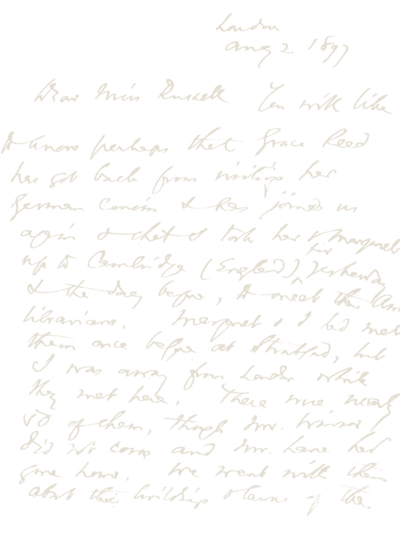 London
Aug 2. 1897
Dear Miss Russell You will like
to know perhaps that Grace Reed
has got back from visiting her
German cousin & has joined us
again & that I took her & Margaret
up to Cambridge (England), yesterday
& the day before, to meet the Am
librarians. Margaret & I had met
them once before at Stratford, but
I was away from London while
they met here. There were nearly
50 of them, though Mr. Winsor
did not come and Mr. Lane had
gone home. We went with them
about the buildings & lawns of the